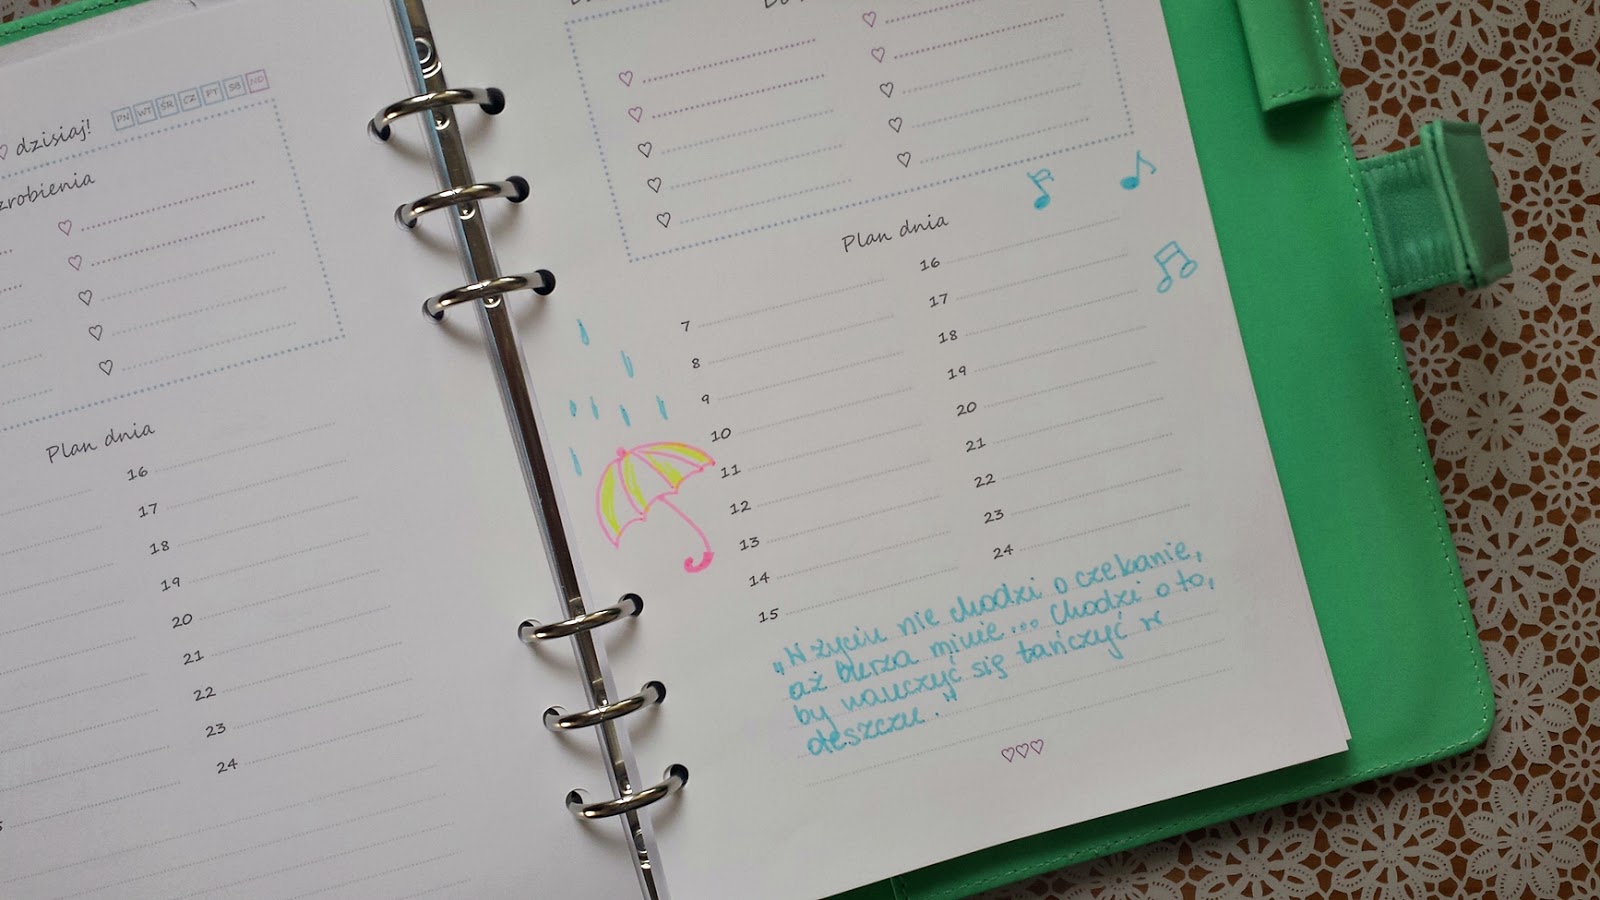 PN WT ŚR CZ PT SB ND
dzisiaj!
zrobienia
Plan dnia
16
17
18
19
20
21
22
23
24
Plan dnia
7
8
9
10
11
12
13
14
15
16
17
18
19
20
21
22
23
24
„W życiu nie chodzi o czekanie,
aż burza minie... Chodzi o to,
by nauczyć się tańczyć w
deszczu."